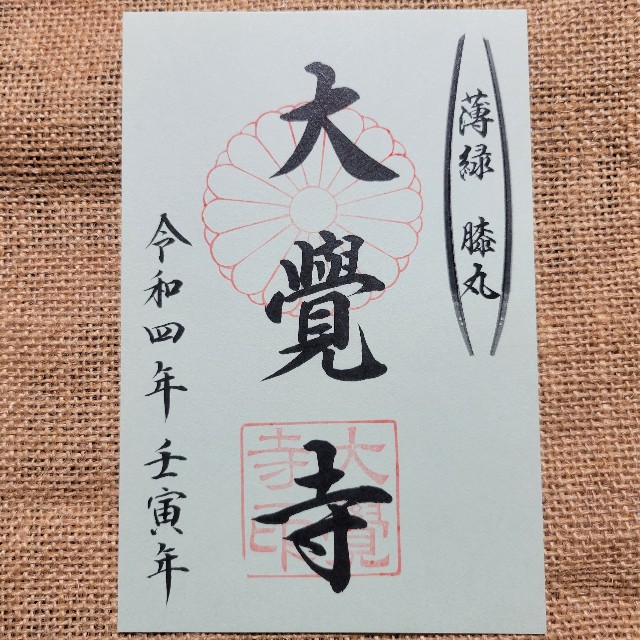 薄緑 膝丸
大覺寺
大覺寺印
令和四年 壬寅年